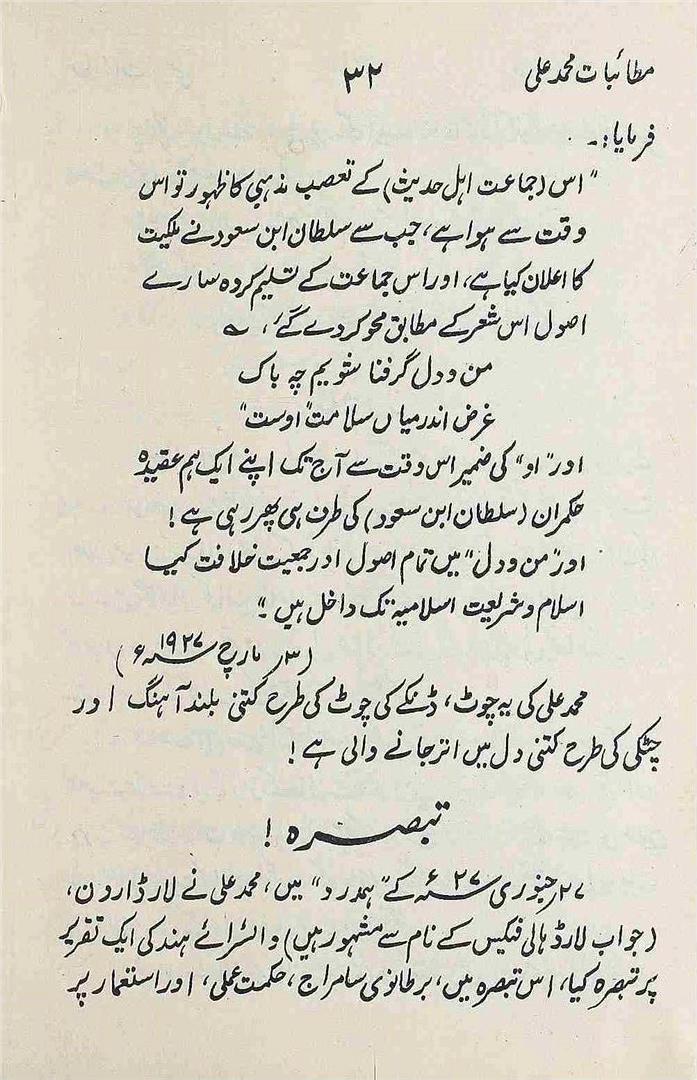 مطائبات محمد علی ۳۲
فرمایا:۔
”اس (جماعت اہل حدیث) کے تعصب مذہبی کا ظہور تو اس
وقت سے ہوا ہے، جب سے سلطان ابن سعود نے ملکیت
کا اعلان کیا ہے، اور اس جماعت کے تسلیم کردہ سارے
اصول اس شعر کے مطابق محو کر دے گئے، ؎
من و دل گر فنا شویم چہ باک
غرض اندر میاں سلامت ”اوست“
اور ”او“ کی ضمیر اس وقت سے آج تک اپنے ایک ہم عقیدہ
حکمران (سلطان ابن سعود) کی طرف ہی پھر رہی ہے!
اور ”من و دل“ میں تمام اصول اور جمعیت خلافت کیا
اسلام و شریعت اسلامیہ تک داخل ہیں۔“
(۳؍ مارچ ۱۹۲۷ء)
محمد علی کی یہ چوٹ، ڈنکے کی چوٹ کی طرح کتنی بلند آہنگ اور
چٹکی کی طرح کتنی دل میں اتر جانے والی ہے!
تبصرہ!
۲۷؍ جنوری ۲۷ء کے ”ہمدرد“ میں، محمد علی نے لارڈ ارون،
(جواب لارڈ ہالی فیکس کے نام سے مشہور ہیں) وائسرائے ہند کی ایک تقریر
پر تبصرہ کیا، اس تبصرہ میں، برطانوی سامراج، حکمت عملی، اور استعمار پر